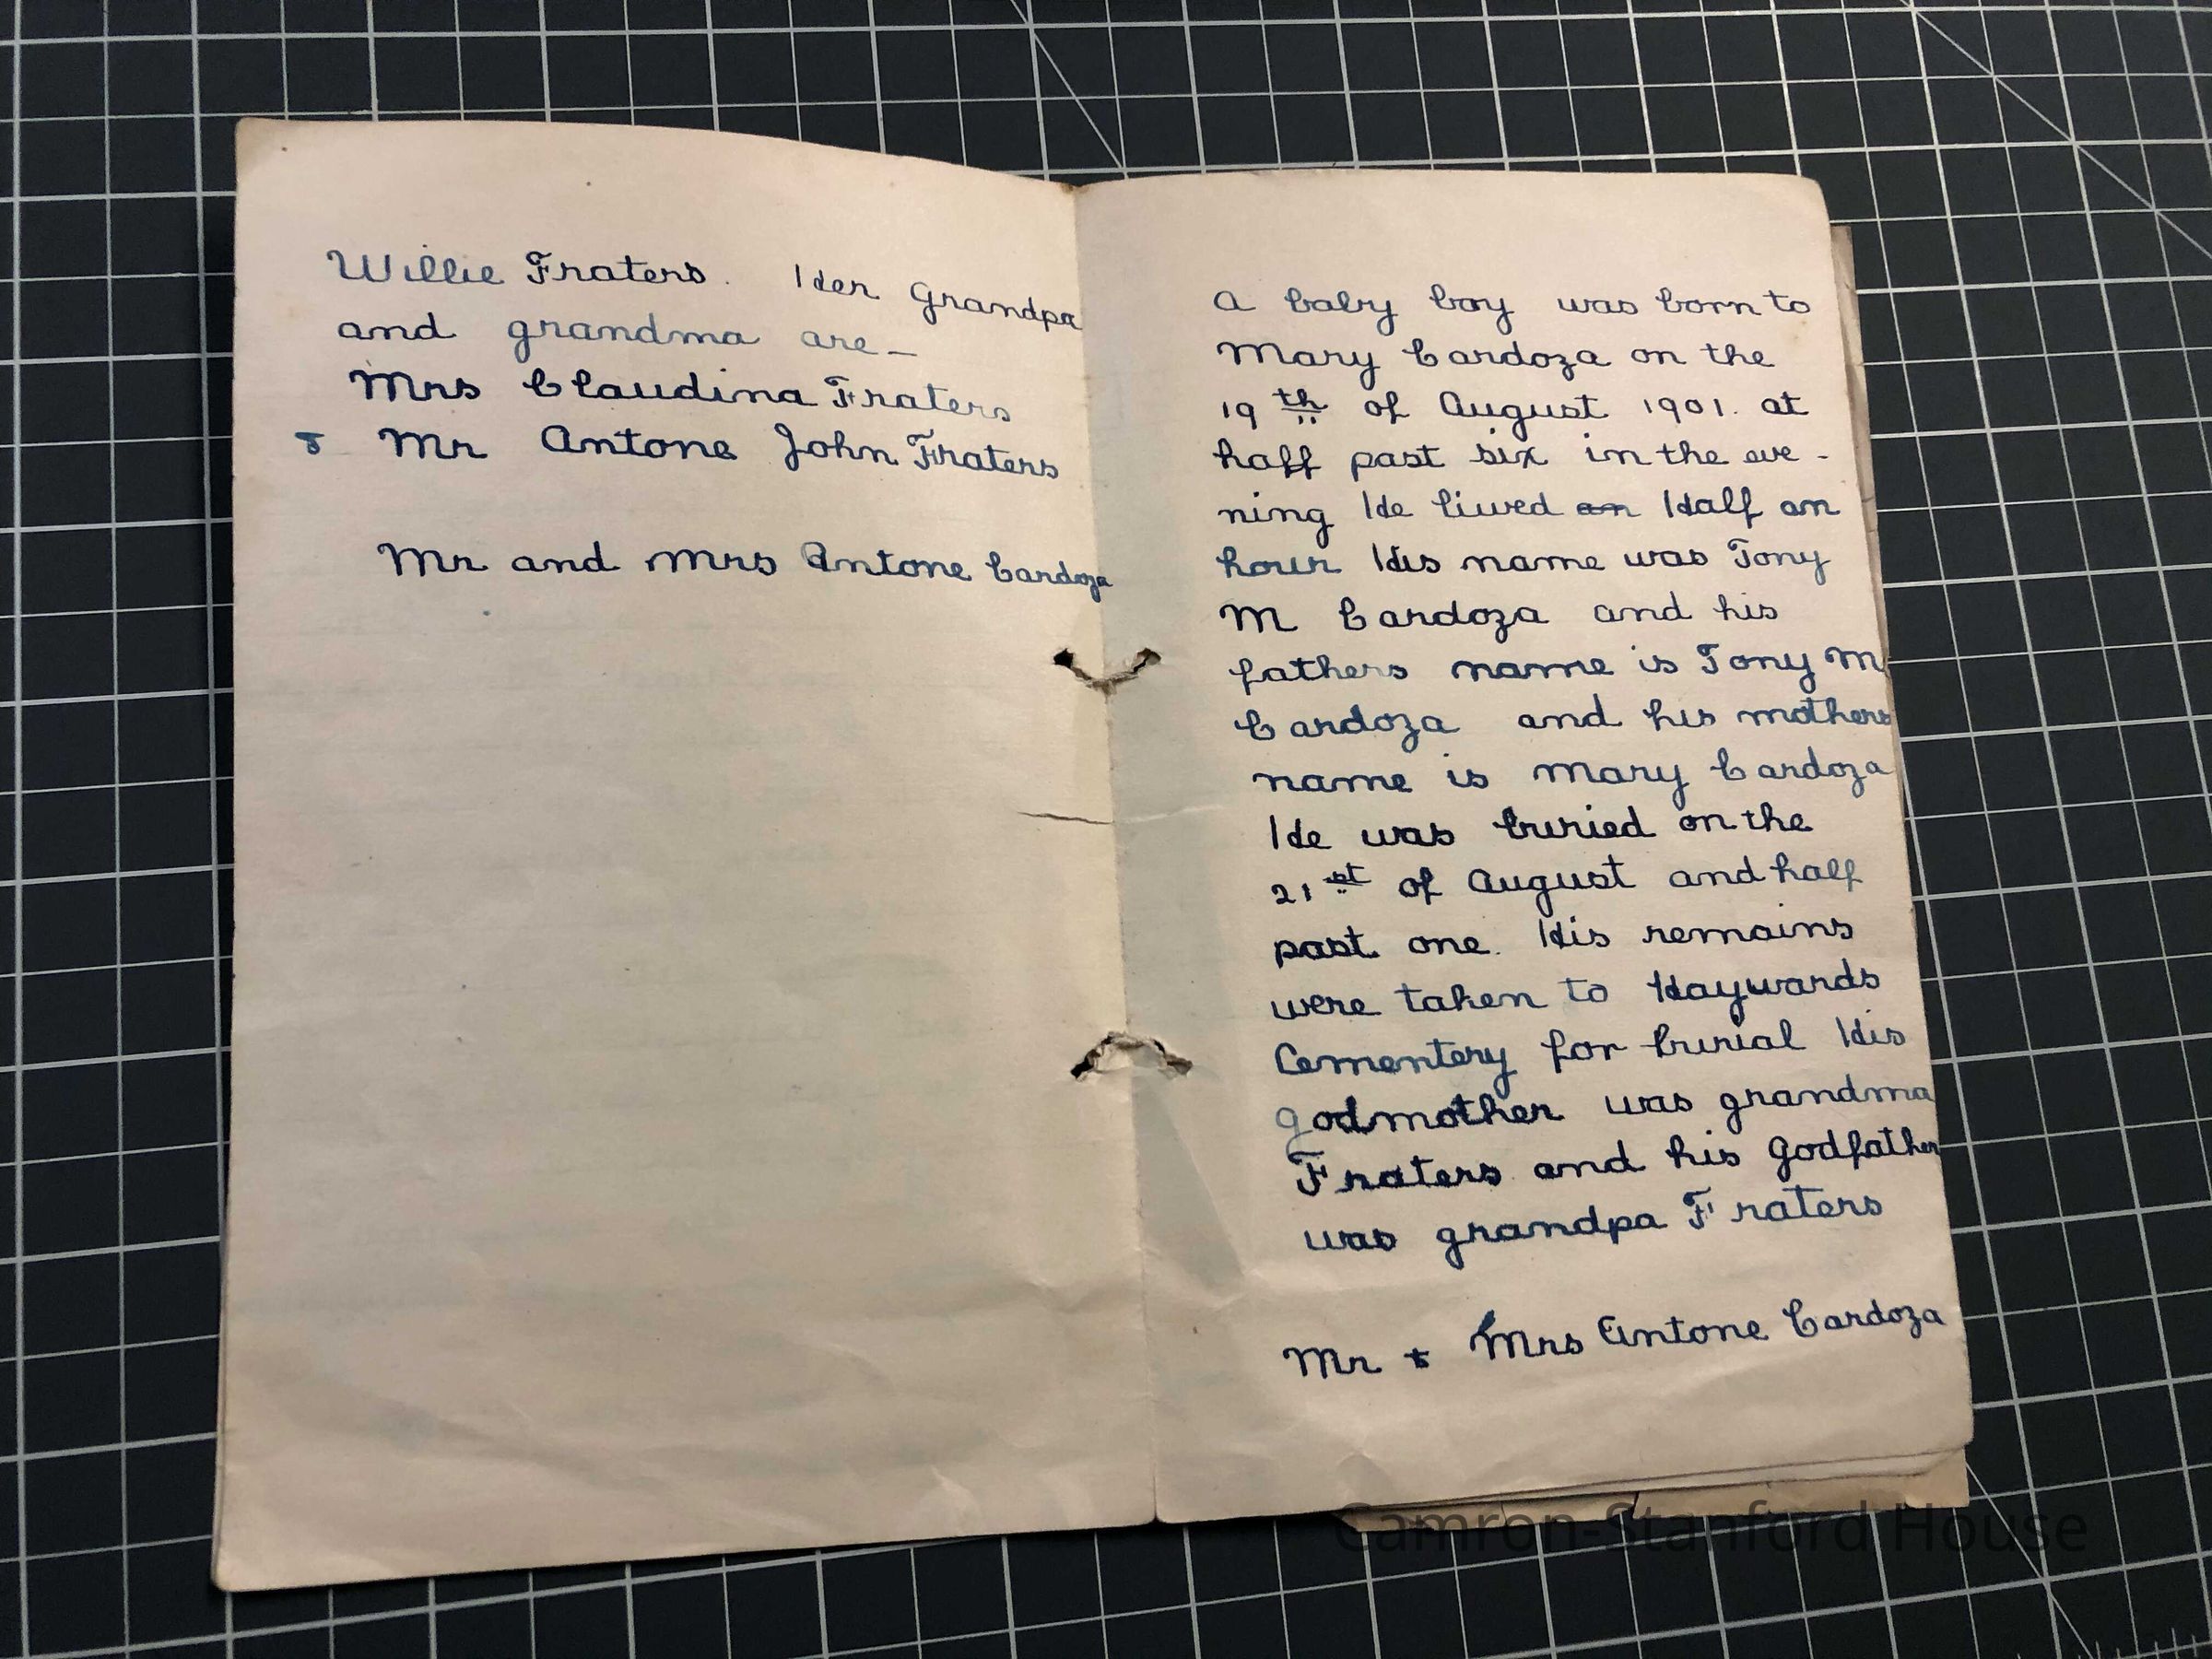 Willie Fraters. Her Grandpa
and grandma are—
Mrs Claudina Fraters
& Mr Antone John Fraters
Mr and Mrs Antone Cardoza
A baby boy was born to
Mary Cardoza on the
19th of August 1901. at
half past six in the eve-
ning He lived an Half an
hour His name was Tony
M Cardoza and his
fathers name is Tony M
Cardoza and his mothers
name is Mary Cardoza
He was buried on the
21st of August and half
past one. His remains
were taken to Haywards
Cementery for burial His
godmother was grandma
Fraters and his Godfather
was grandpa Fraters
Mr & Mrs Antone Cardoza
Camron-Stanford House